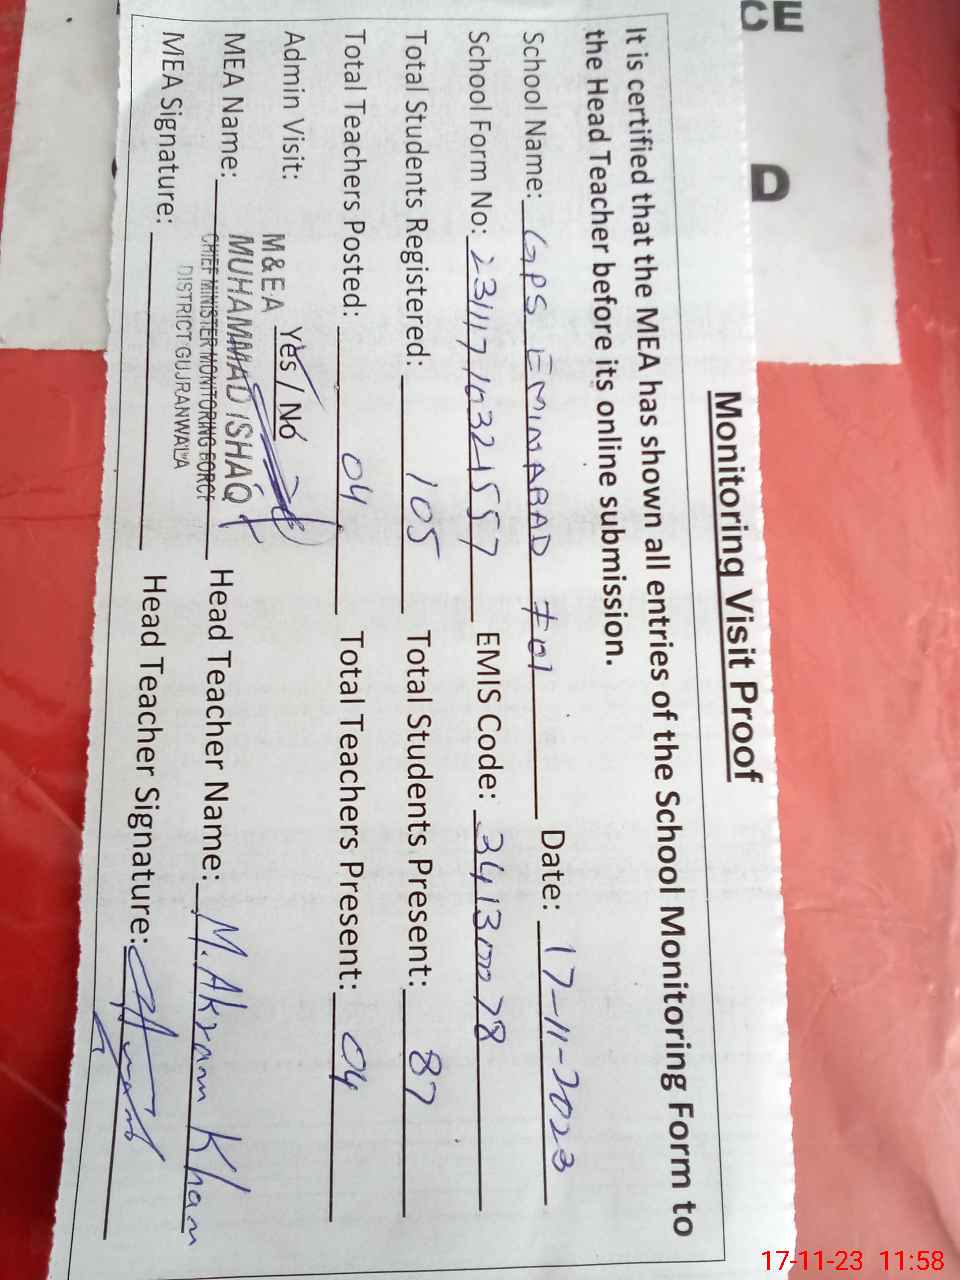 CE
D
Monitoring Visit Proof
It is certified that the MEA has shown all entries of the School Monitoring Form to
the Head Teacher before its online submission.
School Name: GPS EMINABAD #01 Date: 17-11-2023
School Form No: EMIS Code: 34130078
Total Students Registered: 105 Total Students Present: 87
Total Teachers Posted: 04 Total Teachers Present: 04
Admin Visit: Yes / No
M&EA
MEA Name: MUHAMMAD ISHAQ Head Teacher Name: M. Akram Khan
CHIEF MINISTER MONITORING FORCE
DISTRICT GUJRANWALA
MEA Signature: Head Teacher Signature:
17-11-23 11:58